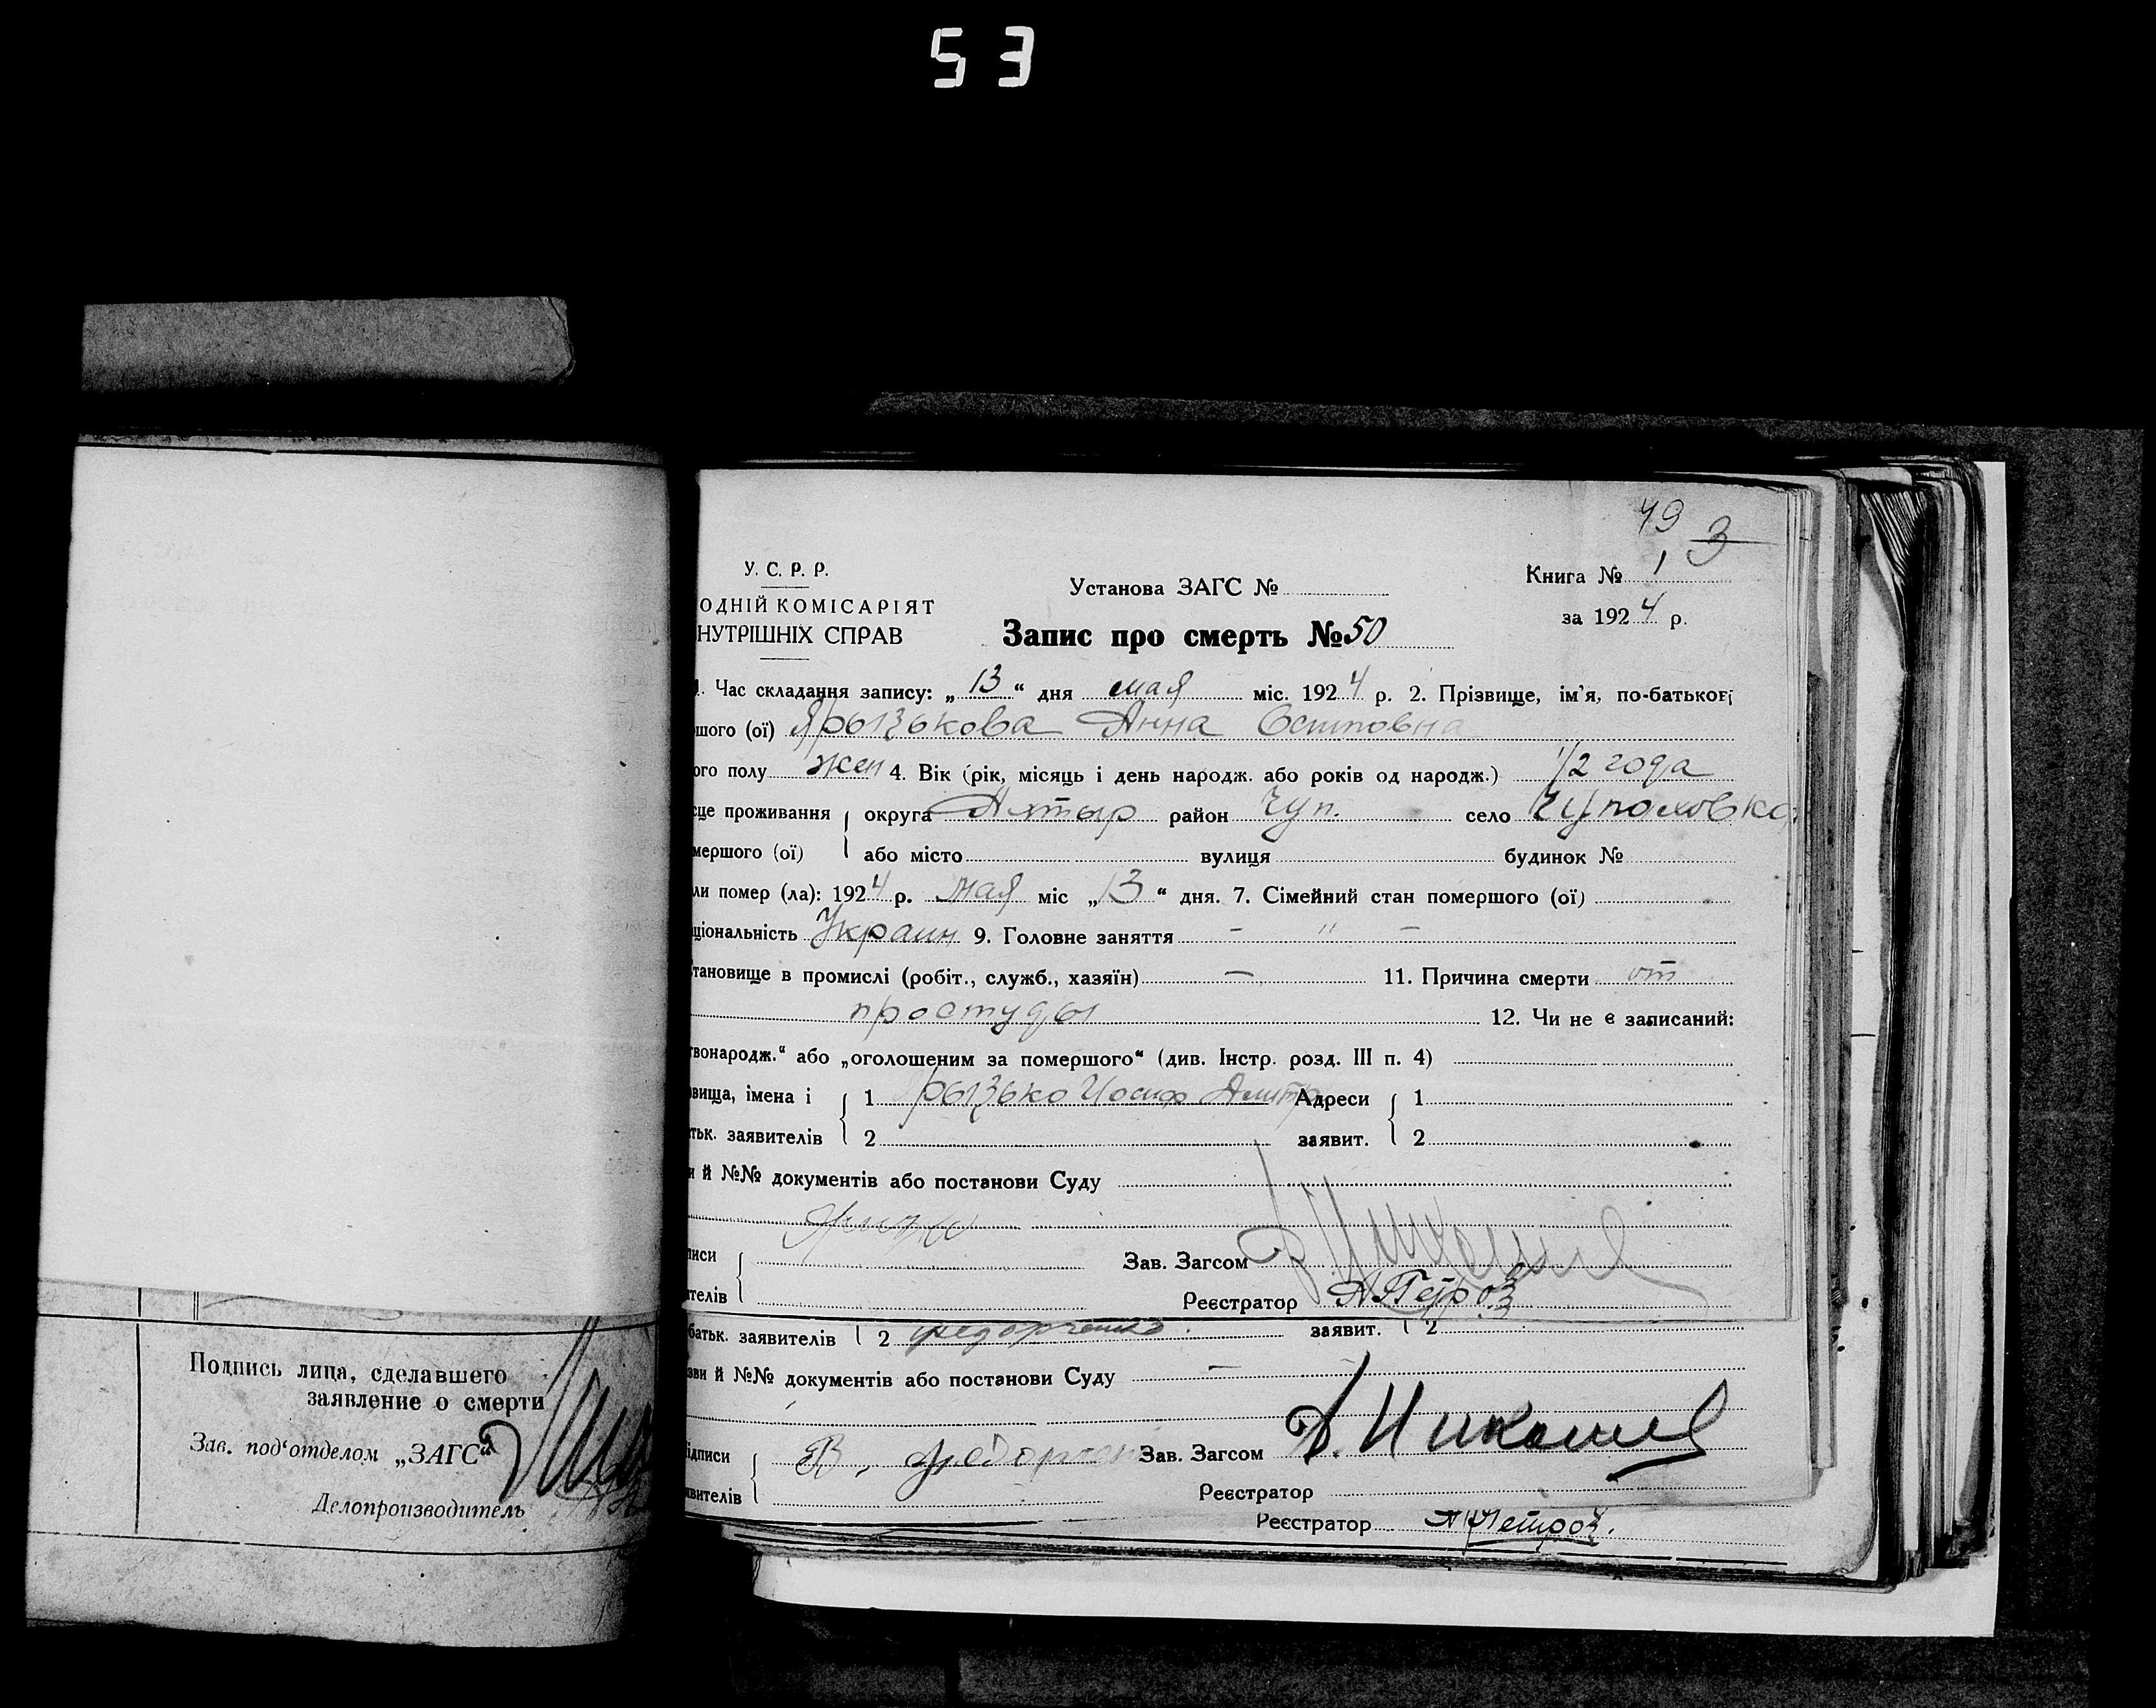 53
49
3
У. С. Р. Р.
Установа ЗАГС №
Книга № 1
ОДНІЙ КОМІСАРІЯТ
за 1924 р.
НУТРІШНІХ СПРАВ
Запис про смерть № 50
1. Час складання запису: „13“ дня мая міс. 1924 р. 2. Прізвище, ім'я, по-батьков
шого (ої) Анна Осиповна
ого полу жен 4. Вік (рік, місяць і день народж. або років од народж.) 1/2 года
сце проживання округа Ахтыр район Чуп. село Чупаховка
мершого (ої) або місто вулиця будинок №
ли помер (ла): 1924 р. мая міс „13“ дня. 7. Сімейний стан помершого (ої)
ціональність Украин 9. Головне заняття - " -
тановище в промислі (робіт., служб., хазяїн) - 11. Причина смерти от
простуды 12. Чи не є записаний:
твонародж.“ або „оголошеним за помершого“ (див. Інстр. розд. III п. 4)
вища, імена і 1 Иосиф Дмитр Адреси 1
тьк. заявителів 2 заявит. 2
и й №№ документів або постанови Суду
писи Зав. Загсом
ителів Реєстратор А Петров
батьк. заявителів 2 Федорченко заявит. 2
зви й №№ документів або постанови Суду -
ідписи В. Федорчен Зав. Загсом
явителів Реєстратор
Реєстратор А Петров.
Подпись лица, сделавшего
заявление о смерти
Зав. под‘отделом „ЗАГС“
Делопроизводитель